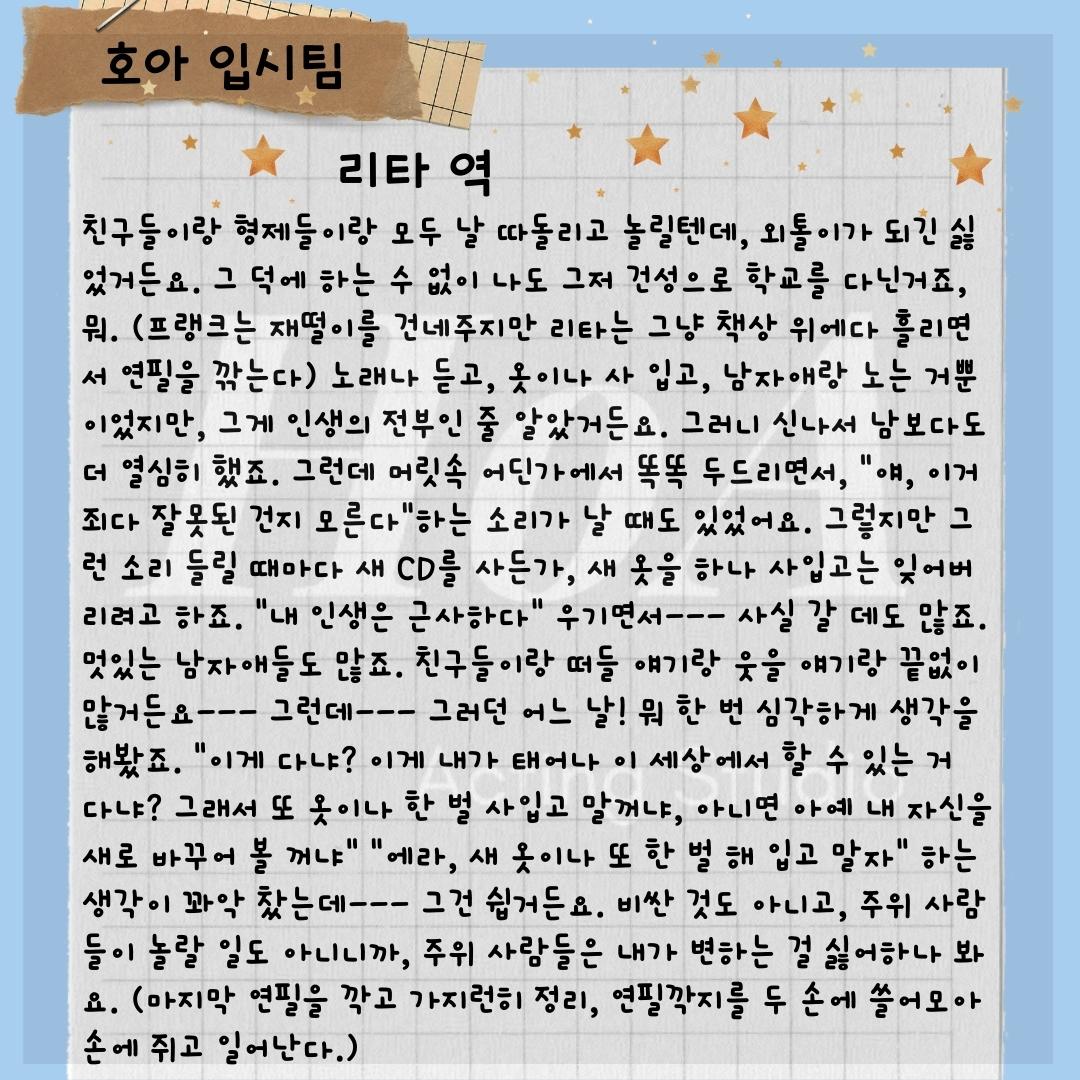 호아 입시팀
리타 역
친구들이랑 형제들이랑 모두 날 따돌리고 놀릴텐데, 외톨이가 되긴 싫
었거든요. 그 덕에 하는 수 없이 나도 그저 건성으로 학교를 다닌거죠,
뭐. (프랭크는 재떨이를 건네주지만 리타는 그냥 책상 위에다 흘리면
서 연필을 깎는다) 노래나 듣고, 옷이나 사 입고, 남자애랑 노는 거뿐
이었지만, 그게 인생의 전부인 줄 알았거든요. 그러니 신나서 남보다도
더 열심히 했죠. 그런데 머릿속 어딘가에서 똑똑 두드리면서, "얘, 이거
죄다 잘못된 건지 모른다"하는 소리가 날 때도 있었어요. 그렇지만 그
런 소리 들릴 때마다 새 CD를 사든가, 새 옷을 하나 사입고는 잊어버
리려고 하죠. "내 인생은 근사하다" 우기면서--- 사실 갈 데도 많죠.
멋있는 남자애들도 많죠. 친구들이랑 떠들 얘기랑 웃을 얘기랑 끝없이
많거든요--- 그런데--- 그러던 어느 날! 뭐 한 번 심각하게 생각을
해봤죠. "이게 다냐? 이게 내가 태어나 이 세상에서 할 수 있는 거
다냐? 그래서 또 옷이나 한 벌 사입고 말꺼냐, 아니면 아예 내 자신을
새로 바꾸어 볼 꺼냐" "에라, 새 옷이나 또 한 벌 해 입고 말자" 하는
생각이 꽈악 찼는데--- 그건 쉽거든요. 비싼 것도 아니고, 주위 사람
들이 놀랄 일도 아니니까, 주위 사람들은 내가 변하는 걸 싫어하나 봐
요. (마지막 연필을 깍고 가지런히 정리, 연필깍지를 두 손에 쓸어모아
손에 쥐고 일어난다.)
HoA
Acting Studio